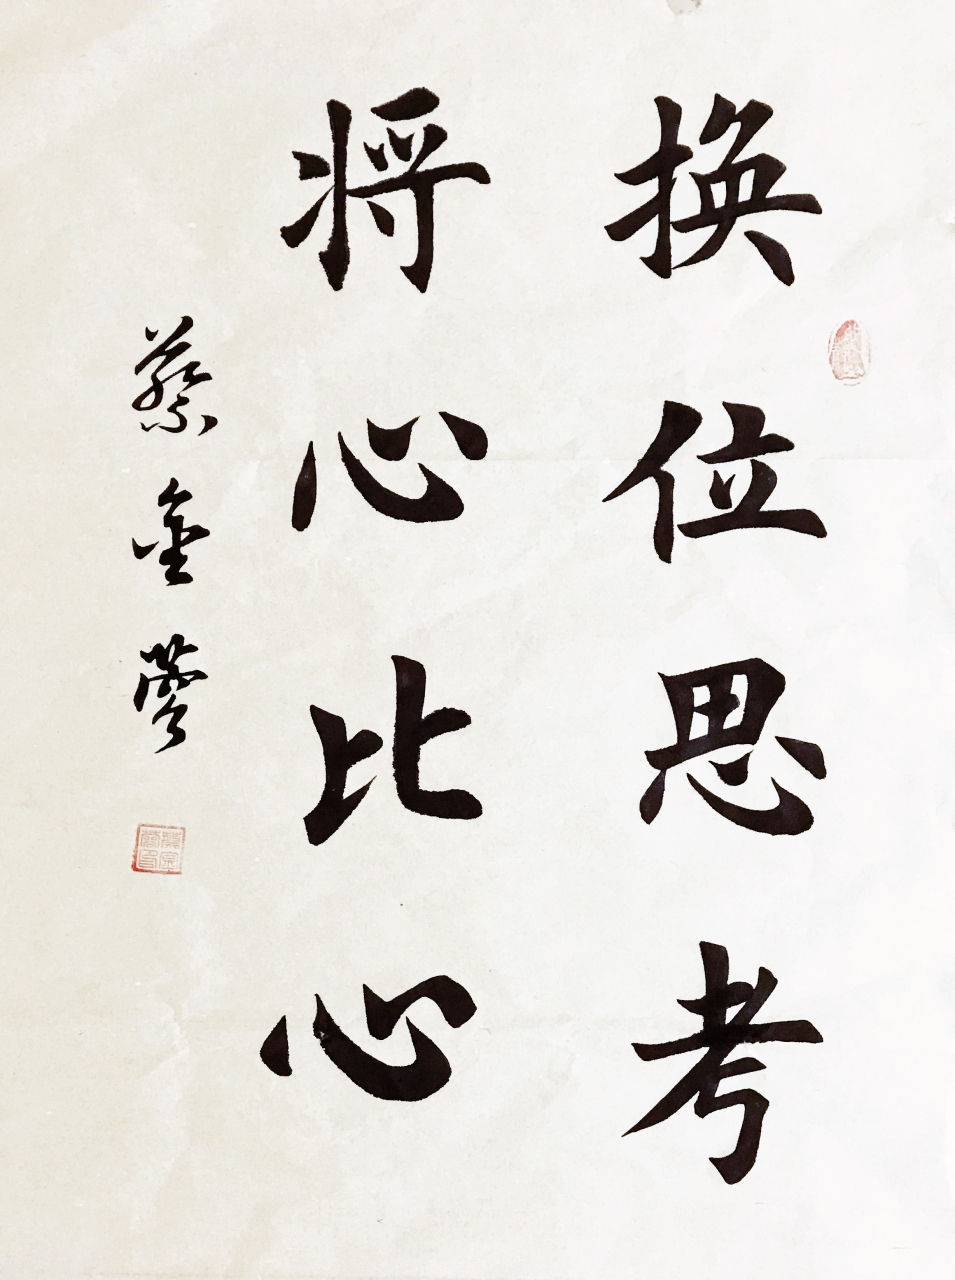 换位思考
将心比心
蔡金